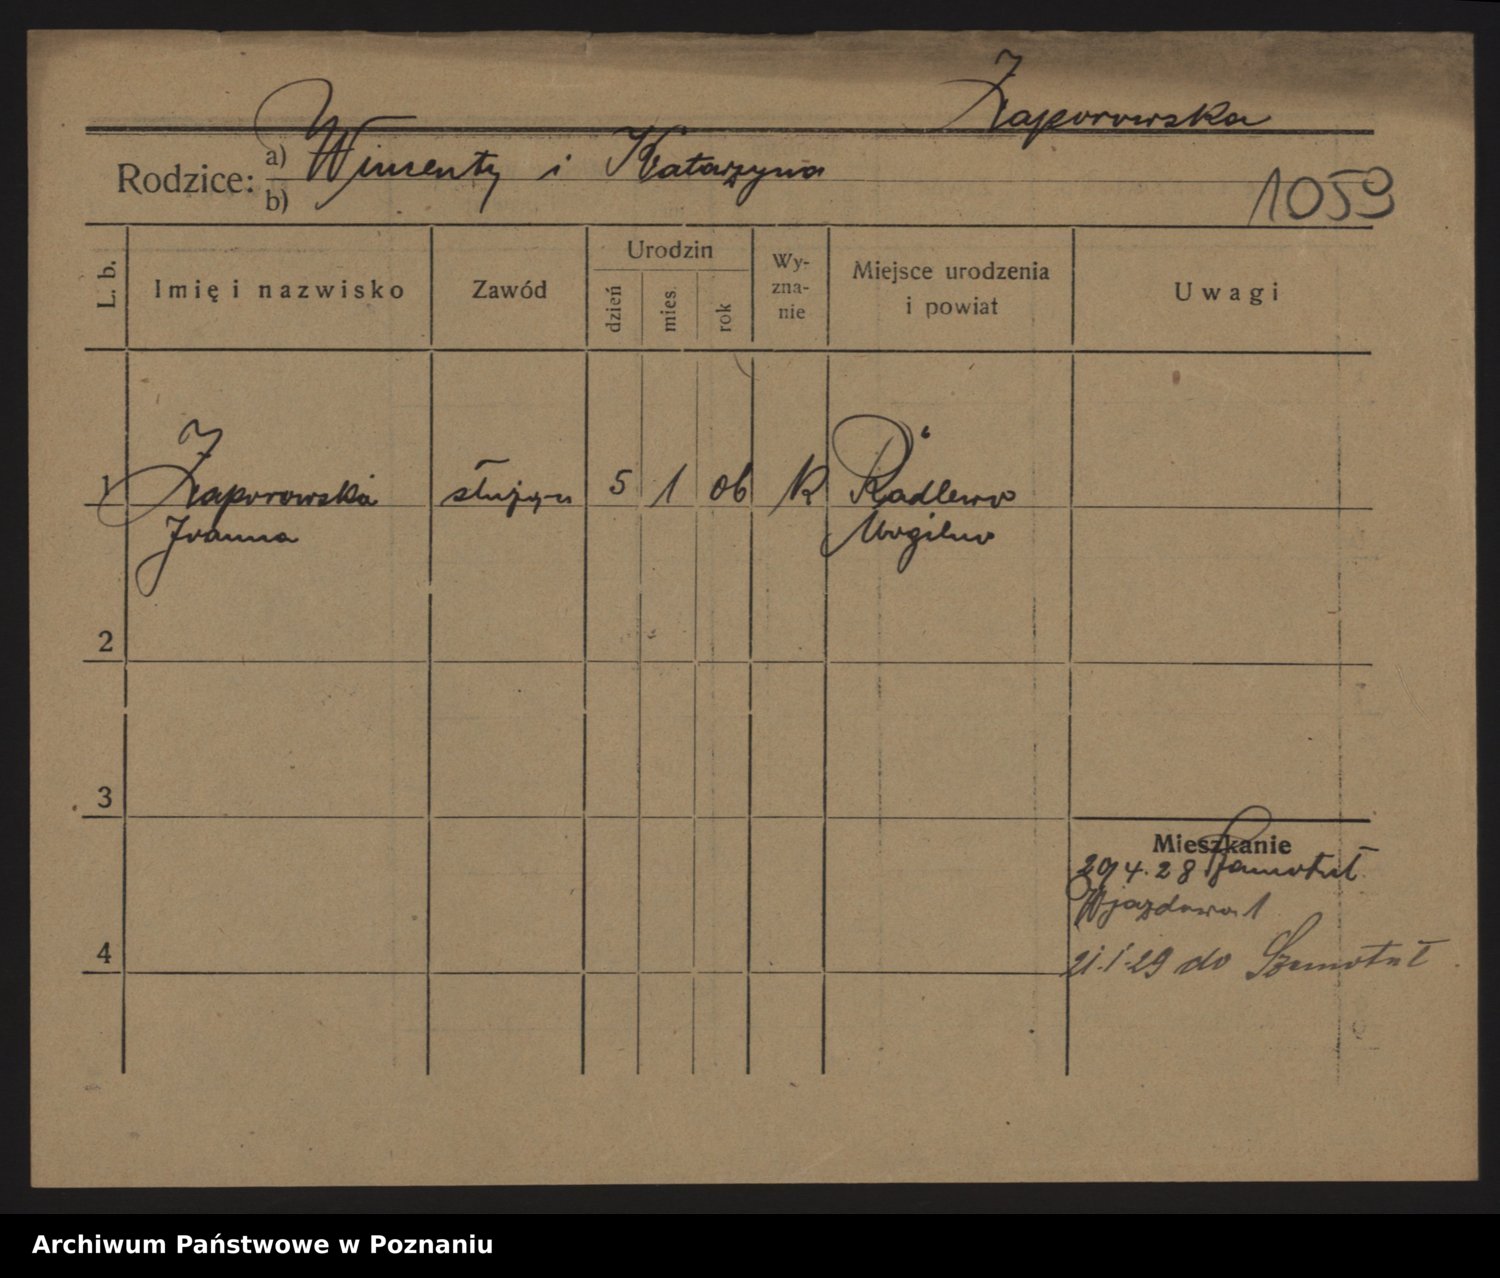 Zaporowska
Rodzice: a) Wincenty i Katarzyna
b)
1059
L. b.
Imię i nazwisko
Zawód
Urodzin
dzień
mies.
rok
Wy-
zna-
nie
Miejsce urodzenia
i powiat
Uwagi
1 Zaporowska służąca 5 1 06 R Radlewo
Joanna Mogilno
2
3
Mieszkanie
29 4.28 Szamotuł
Wjazdowa 1
4
21.1.29 do Szamotuł
Archiwum Państwowe w Poznaniu